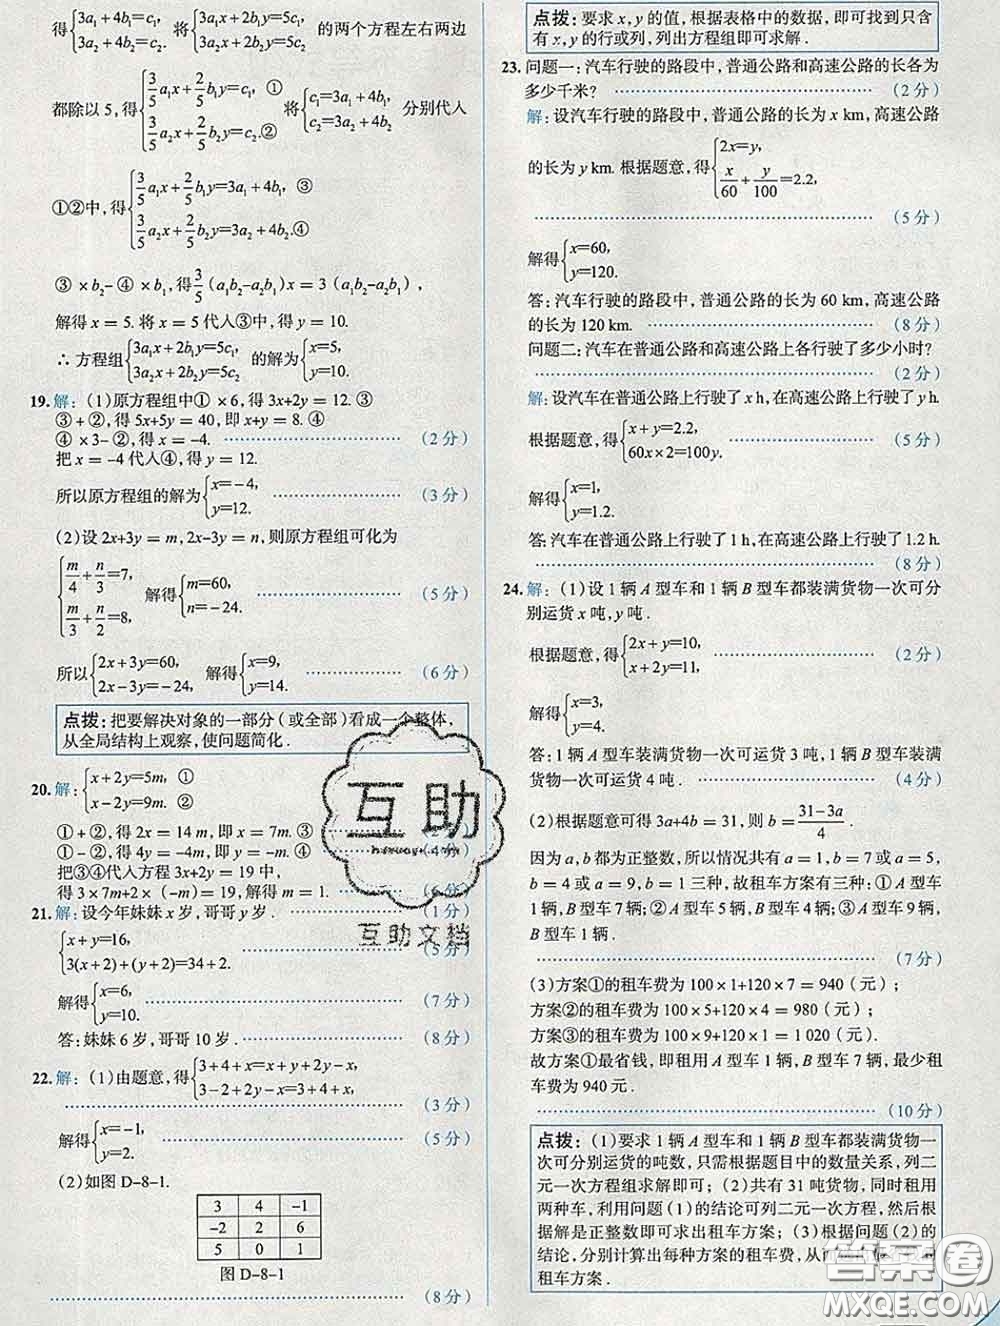 得{3a₁+4b₁=c₁, 3a₂+4b₂=c₂. 将{3a₁x+2b₁y=5c₁, 3a₂x+2b₂y=5c₂ 的两个方程左右两边
都除以 5, 得{3/5 a₁x+2/5 b₁y=c₁, ① 3/5 a₂x+2/5 b₂y=c₂.② 将{c₁=3a₁+4b₁, c₂=3a₂+4b₂ 分别代人
①②中, 得{3/5 a₁x+2/5 b₁y=3a₁+4b₁, ③ 3/5 a₂x+2/5 b₂y=3a₂+4b₂.④
③ ×b₂- ④ ×b₁, 得3/5 (a₁b₂-a₂b₁)x=3(a₁b₂-a₂b₁),
解得 x=5. 将 x=5代人③中, 得 y=10.
∴ 方程组{3a₁x+2b₁y=5c₁, 3a₂x+2b₂y=5c₂ 的解为{x=5, y=10.
19.解: (1)原方程组中① ×6, 得 3x+2y=12. ③
③+②, 得 5x+5y=40, 即 x+y=8. ④
④ ×3-②, 得 x=-4. (2分)
把 x=-4代人④, 得 y=12.
所以原方程组的解为{x=-4, y=12. (3分)
(2)设 2x+3y=m, 2x-3y=n, 则原方程组可化为
{m/4+n/3=7, m/3+n/2=8, 解得{m=60, n=-24. (5分)
所以{2x+3y=60, 2x-3y=-24, 解得{x=9, y=14. (6分)
点拨: 把要解决对象的一部分(或全部)看成一个整体,
从全局结构上观察, 使问题简化.
20.解:{x+2y=5m, ① x-2y=9m. ②
①+②, 得 2x=14m, 即 x=7m. ③
①-②, 得 4y=-4m, 即 y=-m. ④
把③④代人方程 3x+2y=19 中,
得 3×7m+2×(-m)=19, 解得 m=1. (6分)
21.解: 设今年妹妹 x岁, 哥哥 y岁. (1分)
{x+y=16, 3(x+2)+(y+2)=34+2. (5分)
解得{x=6, y=10. (7分)
答: 妹妹 6岁, 哥哥 10岁. (8分)
22.解: (1)由题意, 得{3+4+x=x+y+2y-x, 3-2+2y-x=3+4+x,
(3分)
解得{x=-1, y=2. (5分)
(2)如图 D-8-1.
3 4 -1
-2 2 6
5 0 1
图 D-8-1
(8分)
点拨: 要求 x,y 的值, 根据表格中的数据, 即可找到只含
有 x,y 的行或列, 列出方程组即可求解.
23.问题一: 汽车行驶的路段中, 普通公路和高速公路的长各为
多少千米? (2分)
解: 设汽车行驶的路段中, 普通公路的长为 x km, 高速公路
的长为 y km. 根据题意, 得{2x=y, x/60+y/100=2.2,
(5分)
解得{x=60, y=120.
答: 汽车行驶的路段中, 普通公路的长为 60 km, 高速公路
的长为 120 km. (8分)
问题二: 汽车在普通公路和高速公路上各行驶了多少小时?
(2分)
解: 设汽车在普通公路上行驶了 x h, 在高速公路上行驶了 y h.
根据题意, 得{x+y=2.2, 60x×2=100y. (5分)
解得{x=1, y=1.2.
答: 汽车在普通公路上行驶了 1 h, 在高速公路上行驶了 1.2 h.
(8分)
24.解: (1)设 1辆 A型车和 1辆 B型车都装满货物一次可分
别运货 x吨, y吨.
根据题意, 得{2x+y=10, x+2y=11, (2分)
解得{x=3, y=4.
答: 1辆 A型车装满货物一次可运货 3吨, 1辆 B型车装满
货物一次可运货 4吨. (4分)
(2)根据题意可得 3a+4b=31, 则 b=(31-3a)/4.
因为 a,b都为正整数, 所以情况共有 a=1, b=7或 a=5,
b=4或 a=9, b=1三种, 故租车方案有三种: ①A型车
1辆, B型车7辆; ②A型车5辆, B型车4辆; ③A型车9辆,
B型车 1辆.
(7分)
(3)方案①的租车费为 100×1+120×7=940(元);
方案②的租车费为 100×5+120×4=980(元);
方案③的租车费为 100×9+120×1=1 020(元).
故方案①最省钱, 即租用 A型车 1辆, B型车 7辆, 最少租
车费为 940元.
(10分)
点拨: (1)要求 1辆 A型车和 1辆 B型车都装满货物一
次可分别运货的吨数, 只需根据题目中的数量关系, 列二
元一次方程组求解即可; (2)共有 31吨货物, 同时租用
两种车, 利用问题(1)的结论可列二元一次方程, 然后根
据解是正整数即可求出租车方案; (3)根据问题(2)的
结论, 分别计算出每种方案的租车费, 从
租车方案.
互助
互助文档
答案圈
MXQE.COM